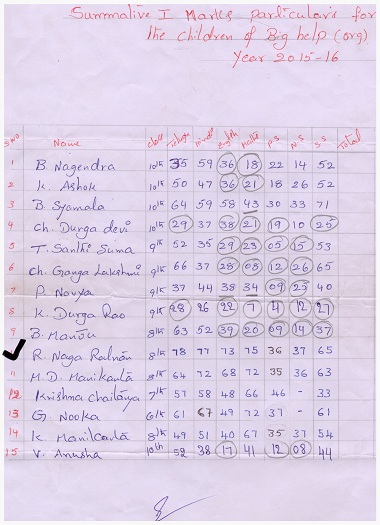 Summative I Marks particulars for
the children of Big help (org)
Year 2015-16
S.No Name class Telugu Hindi English Maths P.S N.S S.S Total
1 B. Nagendra 10th 35 59 36 18 22 14 52
2 K. Ashok 10th 50 47 36 21 18 26 52
3 B. Syamala 10th 64 59 58 43 30 33 71
4 Ch. Durga devi 10th 29 37 38 21 19 10 25
5 T. Santhi Suma 9th 52 35 29 23 05 15 53
6 Ch. Ganga Lakshmi 9th 66 37 28 08 12 26 65
7 P. Navya 9th 37 44 38 34 09 25 40
8 K. Durga Rao 9th 28 26 22 7 4 12 27
9 B. Manju 8th 63 52 39 20 09 14 37
R. Naga Ratnam 8th 78 77 73 75 36 37 65
11 M.D. Manikanta 8th 64 72 68 72 35 36 63
12 Krishna chaitanya 7th 57 58 48 66 46 - 33
13 G. Nooka 6th 61 67 49 72 37 - 61
14 K. Manikanta 8th 49 51 40 67 35 37 54
15 V. Anusha 10th 52 38 17 41 12 08 44